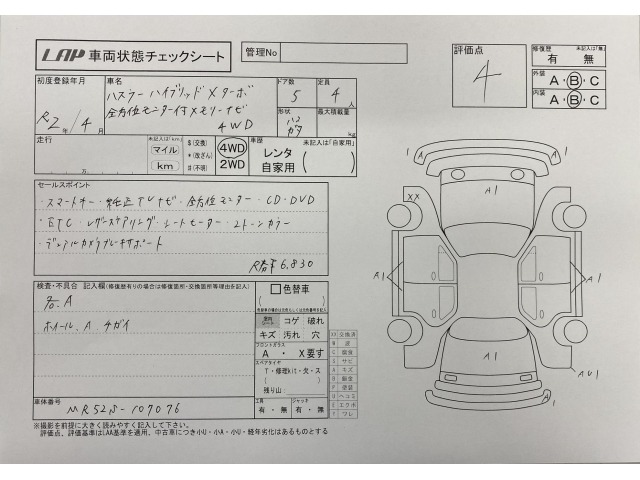 LAP 車両状態チェックシート
管理No
評価点
4
修復歴 未記入は「無」
有 無
外装 A・B・C
内装 A・B・C
初度登録年月
R2年/4月
車名
ハスラー ハイブリッド Xターボ
全方位モニター付メモリーナビ
4WD
ドア数
5
定員
4人
形状
ハコ
最大積載量
kg
走行 未記入は「km」
マイル
km
万
$(交換)
*(改ざん)
#(不明)
4WD
2WD
車歴 未記入は「自家用」
レンタ
自家用 ( )
セールスポイント
・スマートキー・純正TVナビ・全方位モニター・CD・DVD
・ETC・レザーステアリング・シートヒーター・2トーンカラー
・デュアルカメラブレーキサポート
R券¥6,830
検査・不具合 記入欄(修復歴有りの場合は修復箇所・交換箇所等理由を記入)
各.A
ホイール.A チガイ
色替車
( )
コゲ 破れ
キズ 汚れ 穴
フロントガラス
A ・ X要す
スペアタイヤ
T・修理kit・欠・ス
残り山:
工具
有・無
ジャッキ
有・無
車体番号
MR52S-107076
XX 交換済
W 波
C 腐食
S サビ
A キズ
P 塗装
U ヘコミ
E エクボ
Y ワレ
A
A
A1
XX
A1
A1
A1
AU1
A1
※撮影を前提に大きく読みやすく記入して下さい。
評価点、評価基準はLAA基準を適用、中古車につき小U・小A・小U・経年劣化はあるものとする